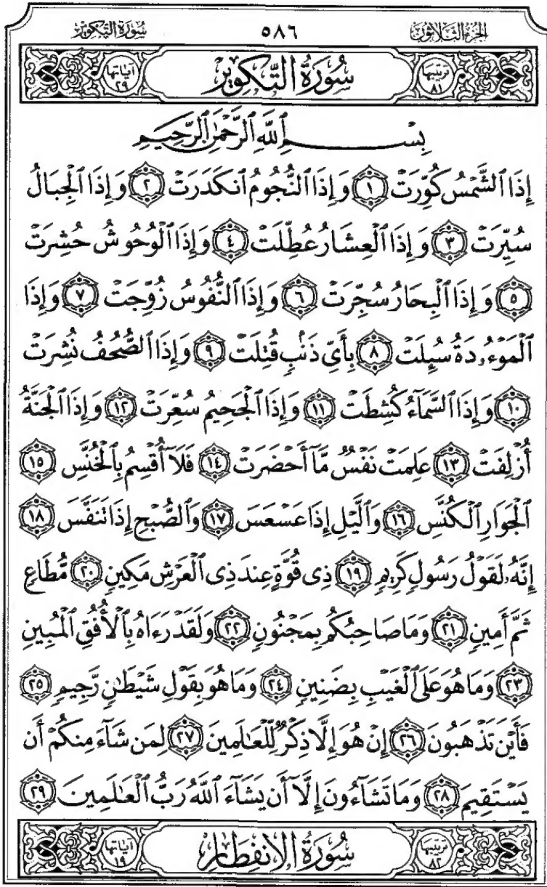 الجزء الثلاثون ٥٨٦ سورة التكوير
ترتيبها ٨١ سُورَةُ التَّكْوِيرِ آياتها ٢٩
بِسْمِ اللَّهِ الرَّحْمَٰنِ الرَّحِيمِ
إِذَا الشَّمْسُ كُوِّرَتْ ١ وَإِذَا النُّجُومُ انكَدَرَتْ ٢ وَإِذَا الْجِبَالُ
سُيِّرَتْ ٣ وَإِذَا الْعِشَارُ عُطِّلَتْ ٤ وَإِذَا الْوُحُوشُ حُشِرَتْ
٥ وَإِذَا الْبِحَارُ سُجِّرَتْ ٦ وَإِذَا النُّفُوسُ زُوِّجَتْ ٧ وَإِذَا
الْمَوْءُۥدَةُ سُئِلَتْ ٨ بِأَيِّ ذَنۢبٍ قُتِلَتْ ٩ وَإِذَا الصُّحُفُ نُشِرَتْ
١٠ وَإِذَا السَّمَآءُ كُشِطَتْ ١١ وَإِذَا الْجَحِيمُ سُعِّرَتْ ١٢ وَإِذَا الْجَنَّةُ
أُزْلِفَتْ ١٣ عَلِمَتْ نَفْسٌ مَّآ أَحْضَرَتْ ١٤ فَلَآ أُقْسِمُ بِالْخُنَّسِ ١٥
الْجَوَارِ الْكُنَّسِ ١٦ وَالَّيْلِ إِذَا عَسْعَسَ ١٧ وَالصُّبْحِ إِذَا تَنَفَّسَ ١٨
إِنَّهُۥ لَقَوْلُ رَسُولٍ كَرِيمٍ ١٩ ذِى قُوَّةٍ عِندَ ذِى الْعَرْشِ مَكِينٍ ٢٠ مُّطَاعٍ
ثَمَّ أَمِينٍ ٢١ وَمَا صَاحِبُكُم بِمَجْنُونٍ ٢٢ وَلَقَدْ رَءَاهُ بِالْأُفُقِ الْمُبِينِ
٢٣ وَمَا هُوَ عَلَى الْغَيْبِ بِضَنِينٍ ٢٤ وَمَا هُوَ بِقَوْلِ شَيْطَٰنٍ رَّجِيمٍ ٢٥
فَأَيْنَ تَذْهَبُونَ ٢٦ إِنْ هُوَ إِلَّا ذِكْرٌ لِّلْعَٰلَمِينَ ٢٧ لِمَن شَآءَ مِنكُمْ أَن
يَسْتَقِيمَ ٢٨ وَمَا تَشَآءُونَ إِلَّآ أَن يَشَآءَ اللَّهُ رَبُّ الْعَٰلَمِينَ ٢٩
ترتيبها ٨٢ سُورَةُ الْإِنفِطَارِ آياتها ١٩